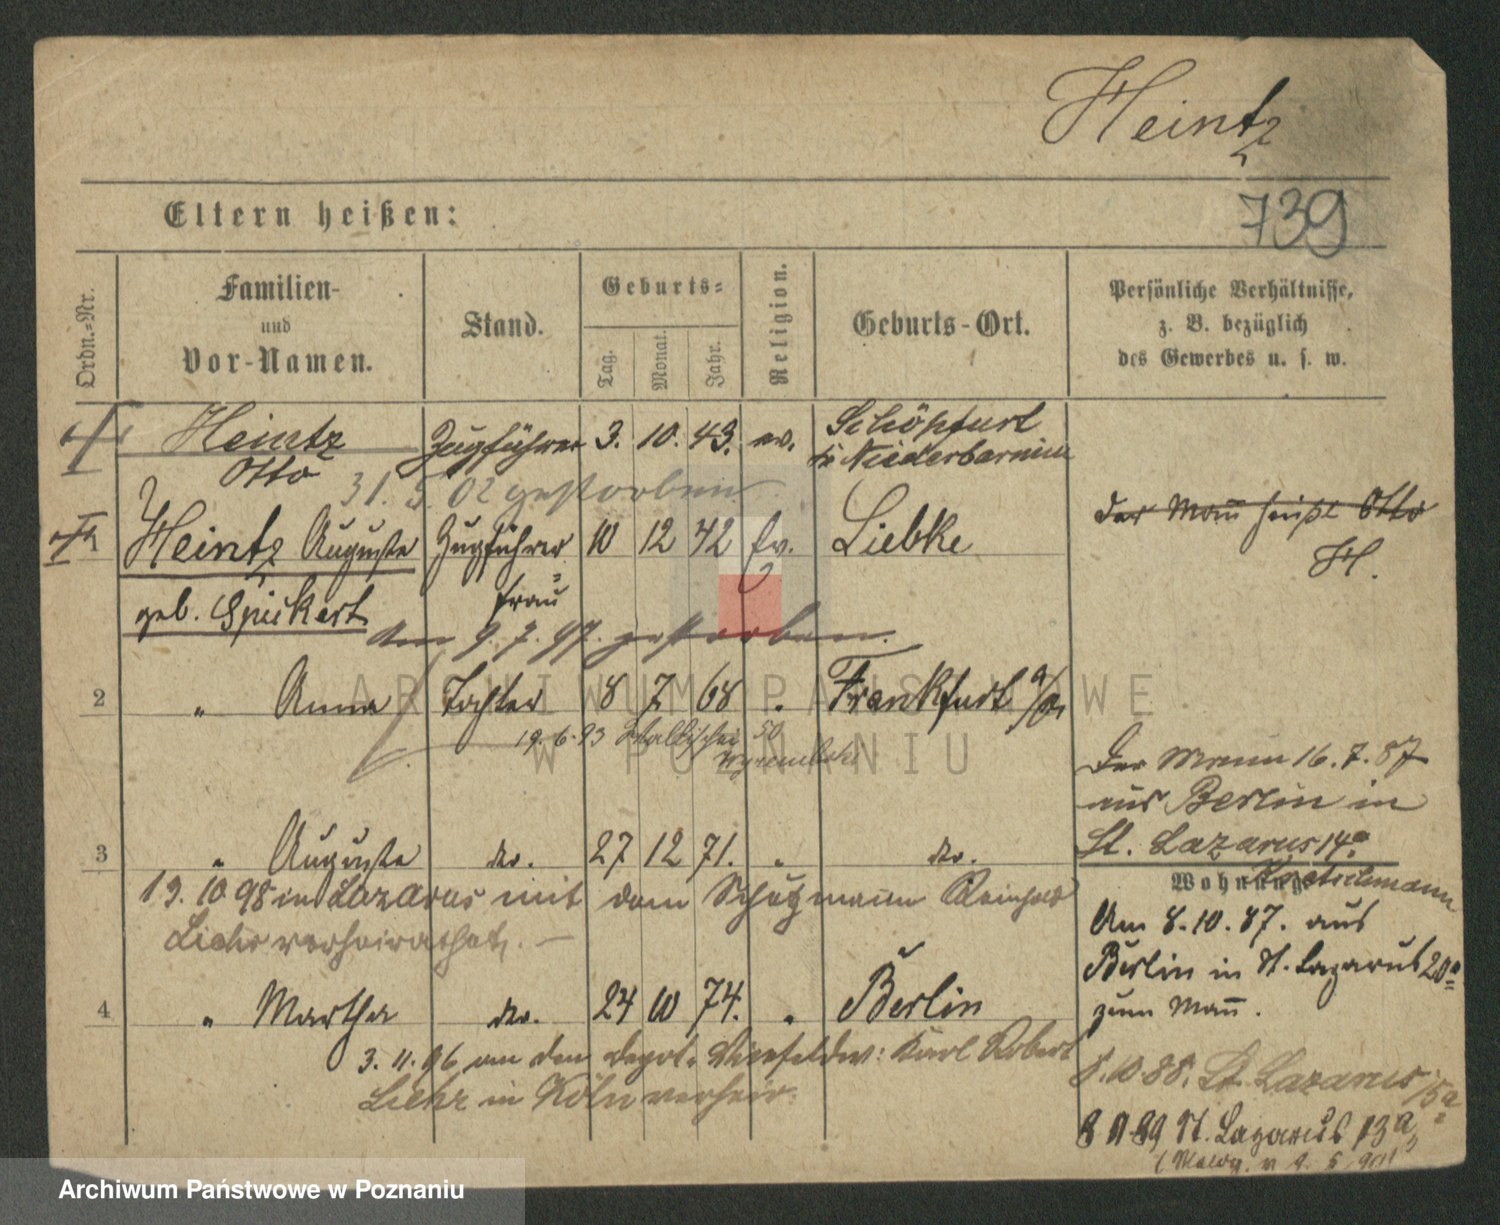 Heintz
739
Eltern heißen:
Ordn.-Nr.
Familien-
und
Vor-Namen.
Stand.
Geburts-
Tag.
Monat.
Jahr.
Religion.
Geburts-Ort.
Persönliche Verhältnisse,
z. B. bezüglich
des Gewerbes u. s. w.
Heintz Zugführer 3. 10. 43. ev. Schöpfurt
Otto Niederbarnim
31. 5. 02 gestorben
1 Heintz Auguste Zugführer 10 12 42 Ev. Liebke
frau
geb. Spickert
am 9. 7. 97. gestorben.
der Mann heißt Otto
H.
2 " Anna Tochter 8 7 68 " Frankfurt a/O
19. 6. 93
3 " Auguste do. 27 12 71. " do.
19. 10 98 in Lazarus mit dem Schutzmann Reinhold
Liehr verheirathet. —
4 " Martha do. 24 10 74. " Berlin
3. 11. 96 an den Karl Robert
Liehr in Köln verheir.
Der Mann 16. 7. 87
aus Berlin in
St. Lazarus 14a
Wohnung
Am 8. 10. 87. aus
Berlin in St. Lazarus 20a
zum Mann.
8. 10 88. St. Lazarus 15a
St. Lazarus 13a
ARCHIWUM PAŃSTWOWE
W POZNANIU
Archiwum Państwowe w Poznaniu